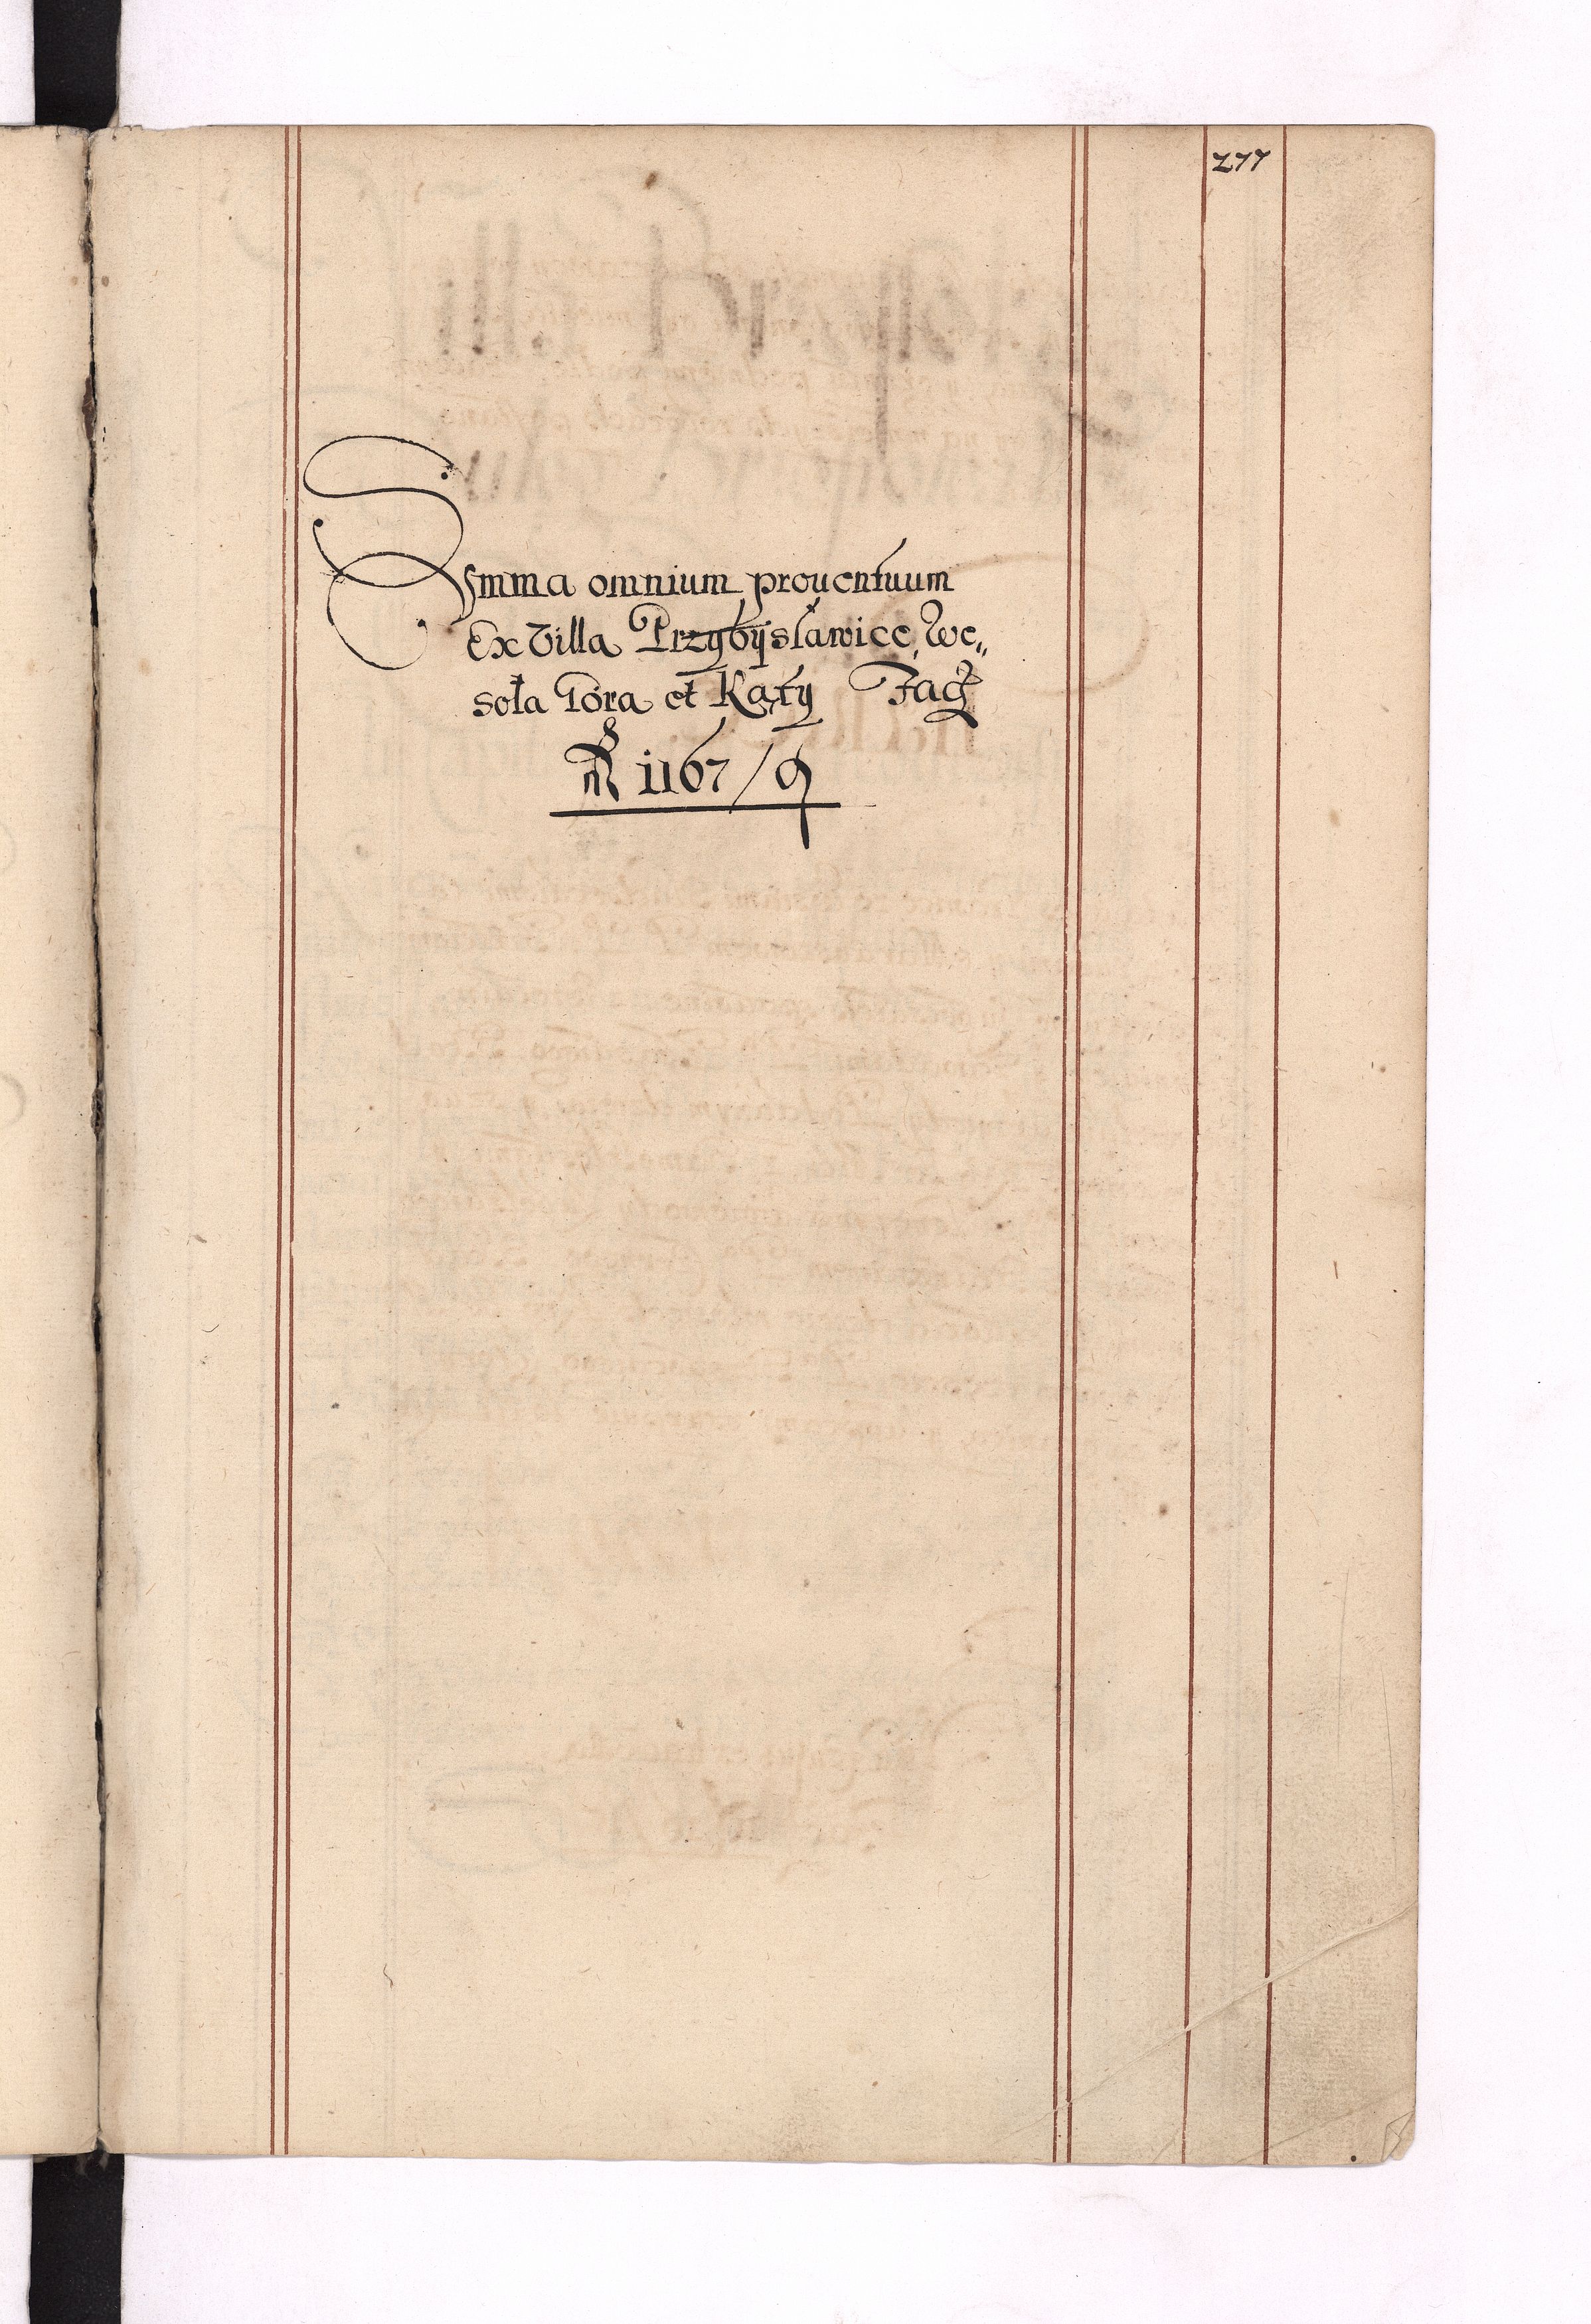 277
Summa omnium prouentuum
Ex Villa Przybysławice, We„
soła Gora et Kąty Facit
fl 1167 / 9